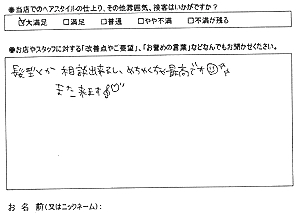 ●当店でのヘアスタイルの仕上り、その他雰囲気、接客はいかがですか？
☑大満足 □満足 □普通 □やや不満 □不満が残る
●お店やスタッフに対する「改善点やご要望」、「お誉めの言葉」などなんでもお聞かせください。
髪型とか 相談出来るし、めちゃくちゃ最高です
また来ます
お名前(又はニックネーム)：